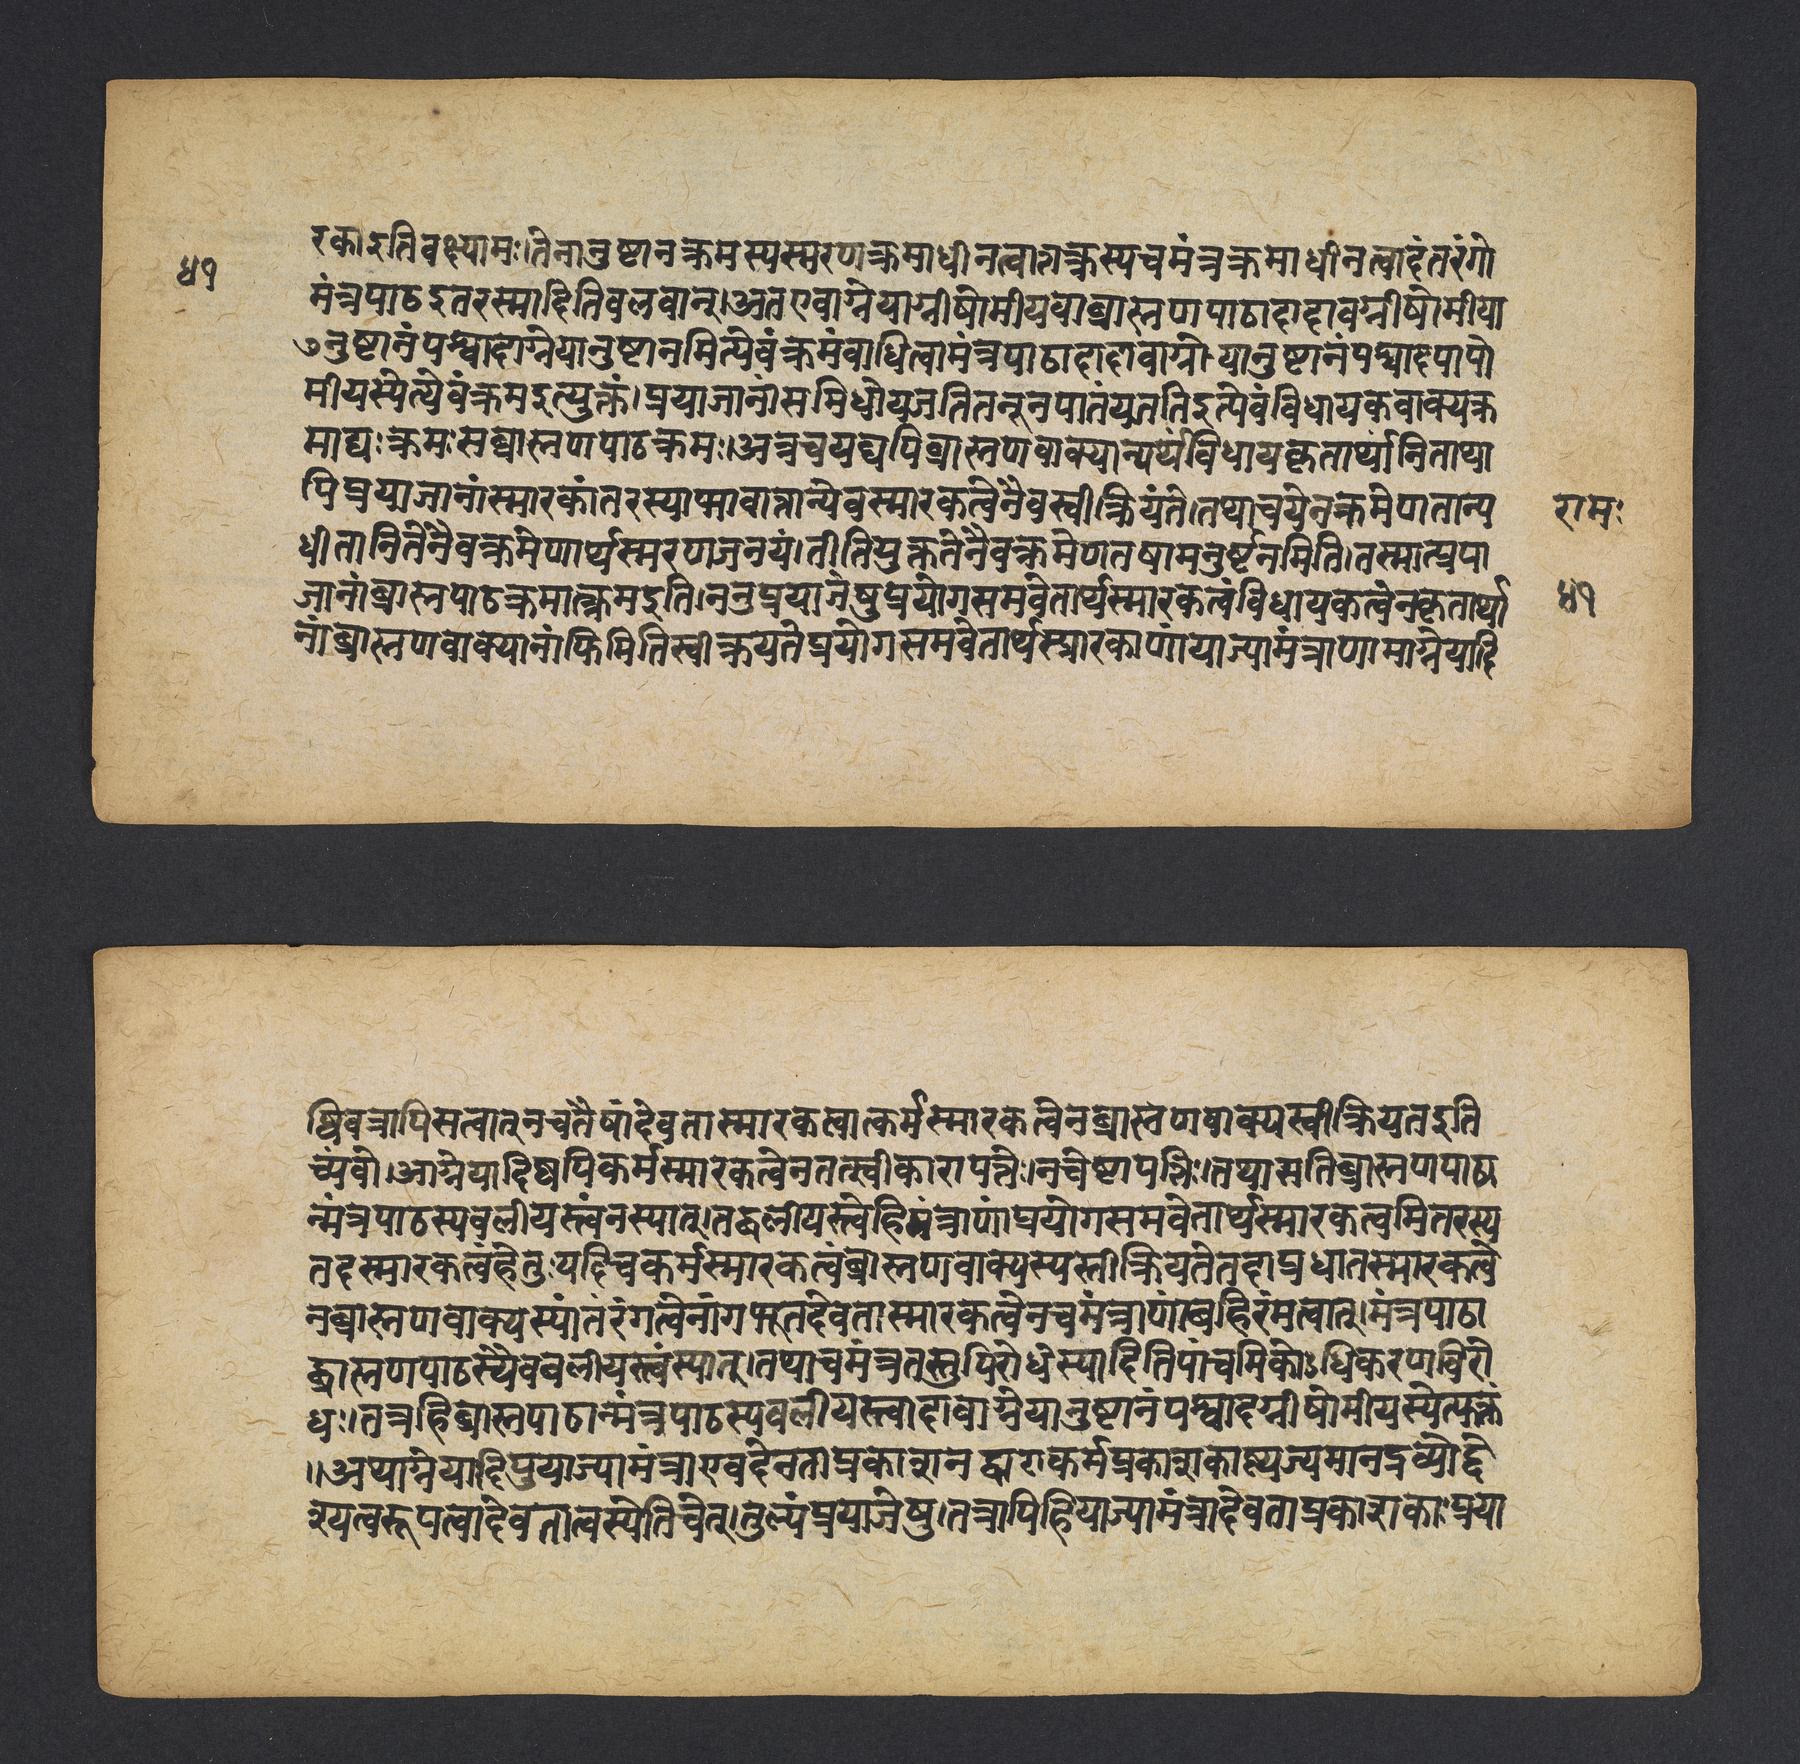 ४१
रकाइतिवक्ष्यामः।तेनानुष्टानक्रमस्यस्मरणक्रमाधीनत्वात्तक्रस्यचमंत्रक्रमाधीनत्वादंतरंगो
मंत्रपाठइतरस्मादितिबलवान्।अतएवाग्नेयाग्नीषोमीययोब्राह्मणपाठादादावग्नीषोमीया
ऽनुष्टानंपश्चादाग्नेयानुष्टानमित्येवंक्रमंबाधित्वामंत्रपाठादादावाग्नेयानुष्टानंपश्चादषापो
मीयस्येत्येवंक्रमइत्युक्तं।प्रयाजानांसमिधोयजतितनूनपातंयततिइत्येवंविधायकवाक्यक्र
माद्यःक्रमःसब्राह्मणपाठक्रमः।अत्रचयद्यपिब्राह्मणवाक्यान्यर्थंविधायकृतार्थानितथा
पिप्रयाजानांस्मारकांतरस्याभावात्तान्येवस्मारकत्वेनैवस्वीक्रियंते।तथाचयेनक्रमेणतान्य
धीतानितेनैवक्रमेणार्थस्मरणजनयं।तीतियुक्ततेनैवक्रमेणतषामनुष्टनमिति।तस्मात्प्रपा
जानांब्राह्मपाठक्रमात्क्रमइति।ननुप्रयाजेषुप्रयोगसमवेतार्थस्मारकत्वंविधायकत्वेनकृतार्था
नांब्राह्मणवाक्यानांकिमितिस्वीक्रयतेप्रयोगसमवेतार्थस्मारकाणांयाज्यामंत्राणामाग्नेयादि
रामः
४१
ष्विवत्रापिसत्वात्नचतेषांदेवतास्मारकत्वात्कर्मस्मारकत्वेनब्राह्मणवाक्यस्वीक्रियतइति
च्यंवो।आग्नेयादिष्वपिकर्मस्मारकत्वेनतत्स्वीकारापत्तेः।नचेष्टापत्तिः।तथासतिब्राह्मणपाठा
न्मंत्रपाठस्यबलीयस्त्वंनस्यात्।तद्बलीयस्त्वेहिमंत्राणांप्रयोगसमवेतार्थस्मारकत्वमितरस्य
तदस्मारकत्वंहेतुःयदिचकर्मस्मारकत्वंब्राह्मणवाक्यस्यस्वीक्रियतेतदाप्रधातस्मारकत्वे
नब्राह्मणवाक्यस्यांतरंगत्वेनांगभूतदेवतास्मारकत्वेनचमंत्राणांबहिरंमत्वात्।मंत्रपाठा
द्ब्राह्मणपाठस्यैवबलीयस्त्वंस्यात्।तथाचमंत्रतस्तुपिरोधेस्यादितिपांचमिकोऽधिकरणविरो
धः।तत्रहिब्राह्मपाठान्मंत्रपाठस्यबलीयस्त्वादावाग्नेयानुष्टानंपश्चादग्नीषोमीयस्येत्युक्तं
।।अथाग्नेयादिपुयाज्यामंत्राएवदेनताप्रकाशनद्वाराकर्मप्रकाशकाःत्यज्यमानद्रव्योद्दे
श्यत्वरूपत्वादेवतात्वस्येतिचेत्।तुल्यंप्रयाजेषु।तत्रापिहियाज्यामंत्रादेवताप्रकाशकाःप्रया